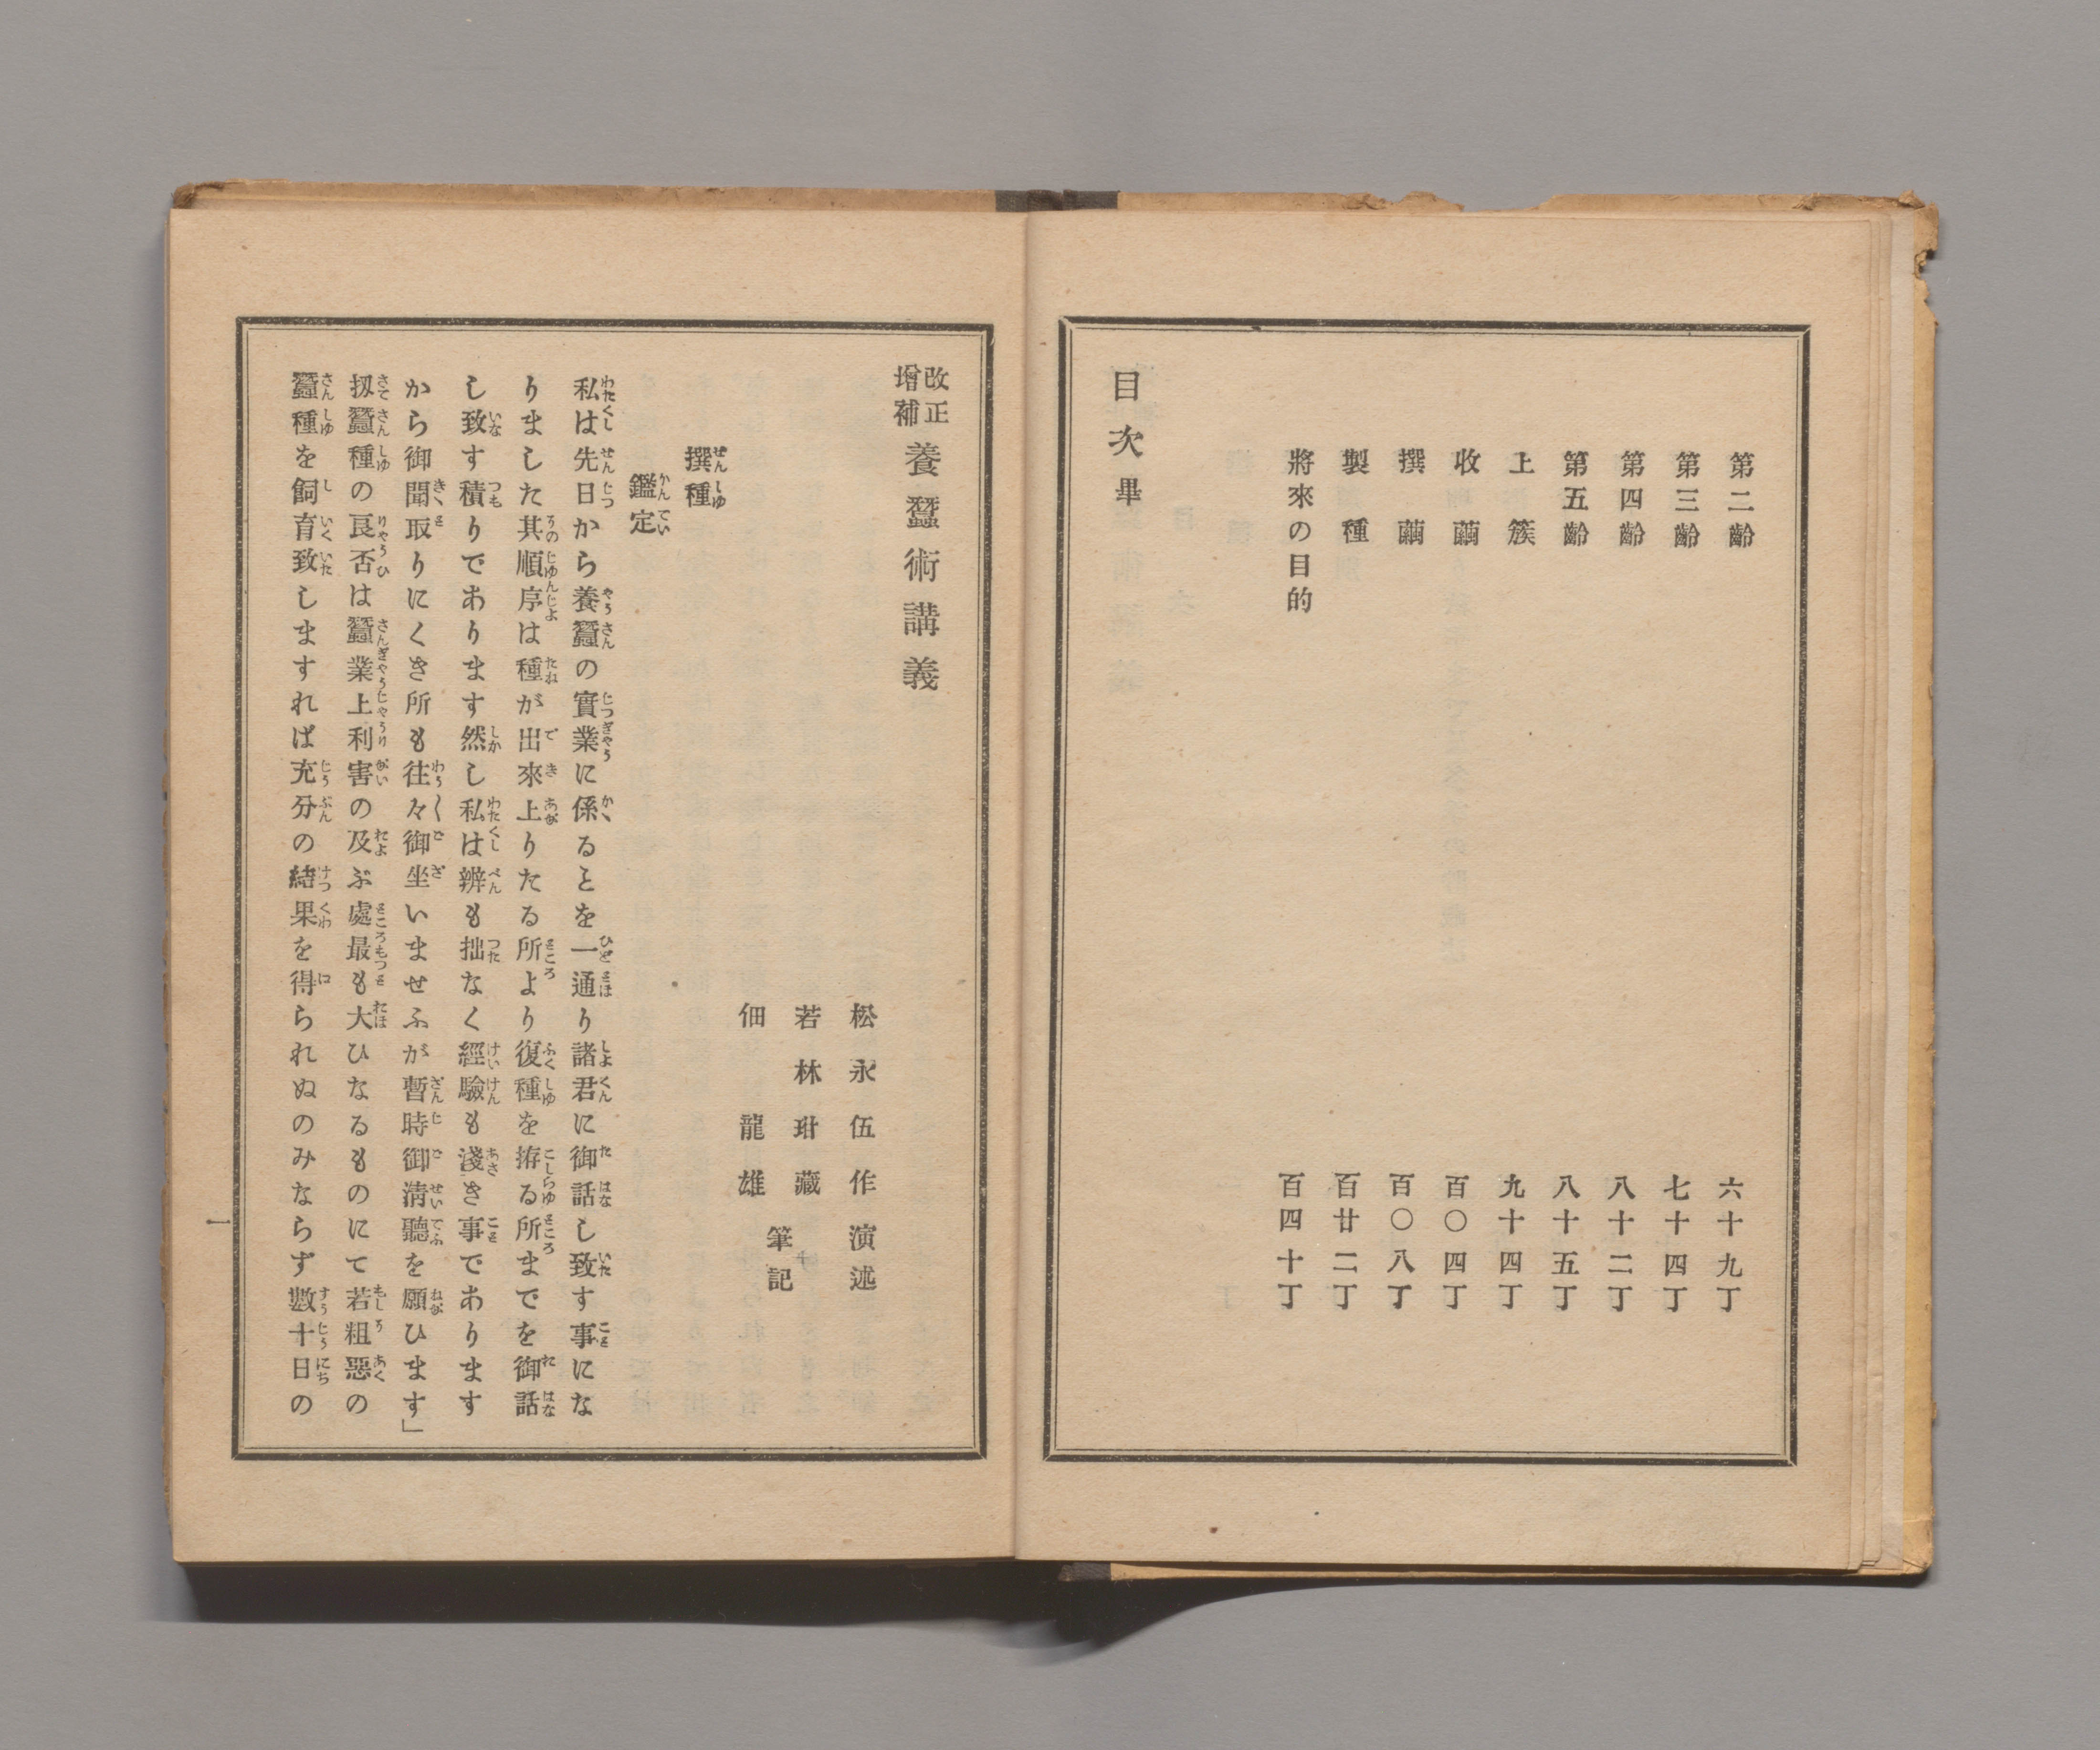 第二齡 六十九丁
第三齡 七十四丁
第四齡 八十二丁
第五齡 八十五丁
上簇 九十四丁
收繭 百〇四丁
撰繭 百〇八丁
製種 百廿二丁
將來の目的 百四十丁
目次畢
改正增補 養蠶術講義
松永伍作 演述
若林玵藏
佃龍雄
筆記
撰種
鑑定
私は先日から養蠶の實業に係ることを一通り諸君に御話し致す事にな
りました其順序は種が出來上りたる所より復種を拵る所までを御話
し致す積りであります然し私は辨も拙なく經驗も淺き事であります
から御聞取りにくき所も往々御坐いませふが暫時御淸聽を願ひます」
扨蠶種の良否は蠶業上利害の及ぶ處最も大ひなるものにて若粗惡の
蠶種を飼育致しますれば充分の結果を得られぬのみならず數十日の
一